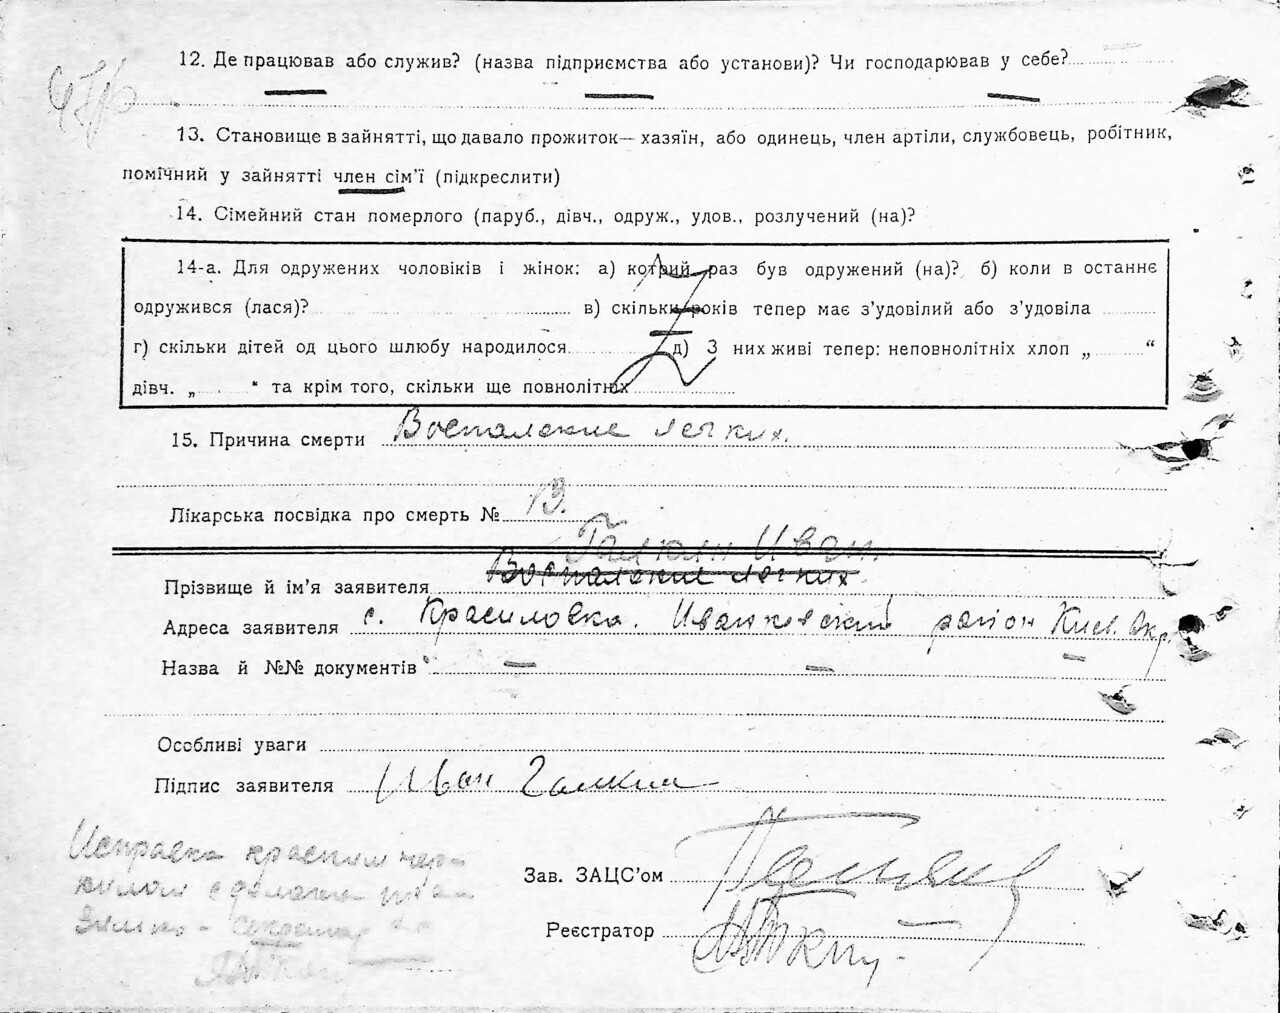 12. Де працював або служив? (назва підприємства або установи)? Чи господарював у себе?
13. Становище в зайнятті, що давало прожиток— хазяїн, або одинець, член артіли, службовець, робітник,
помічний у зайнятті член сім'ї (підкреслити)
14. Сімейний стан померлого (паруб., дівч., одруж., удов., розлучений (на)?
14-а. Для одружених чоловіків і жінок: а) котрий раз був одружений (на)? б) коли в останнє
одружився (лася)? в) скільки років тепер має з'удовілий або з'удовіла
г) скільки дітей од цього шлюбу народилося д) З них живі тепер: неповнолітніх хлоп „ “
дівч. „ “ та крім того, скільки ще повнолітніх
15. Причина смерти Воспаление легких.
Лікарська посвідка про смерть № 13.
Галкин Иван.
Прізвище й ім'я заявителя Воспаление легких
Адреса заявителя с. Красиловка. Иванковский район Киев. Окр.
Назва й №№ документів
Особливі уваги
Підпис заявителя Иван Галкин
Исправка красным чер-
нилом сделана
Зав. ЗАЦС'ом
Реєстратор